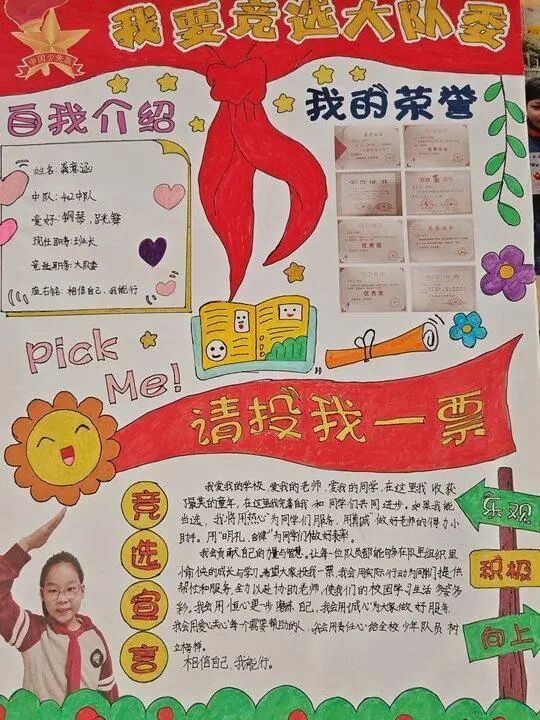 我要竞选大队委
中国少先队
自我介绍
我的荣誉
中队：402中队
爱好：钢琴、跳舞
现任职务：班长
竞选职务：大队委
座右铭：相信自己、我能行
优秀奖
优秀奖
优秀奖
Pick
Me!
请投我一票
竞选宣言
我爱我的学校，爱我的老师，爱我的同学，在这里我收获
了最美的童年，在这里我完善自我和同学们共同进步。如果我能
当选，我将用热心为同学们服务，用真诚做好老师的得力小
助手。用"明礼，自律"为同学们做好表率。
我会贡献自己的力量与智慧。让每一位队员都能够在队里组织里
愉快的成长与学习。希望大家投我一票，我会用实际行动为同学们提供
帮忙和服务，全力以赴协助老师，使我们的校园学习生活多姿多
彩。我会用恒心进一步磨练自己，我会用诚心为大家做好服务，
我会用爱心关心每个需要帮助的人，我会用责任心给全校少年队员树
立榜样。
相信自己、我能行。
乐观
积极
向上